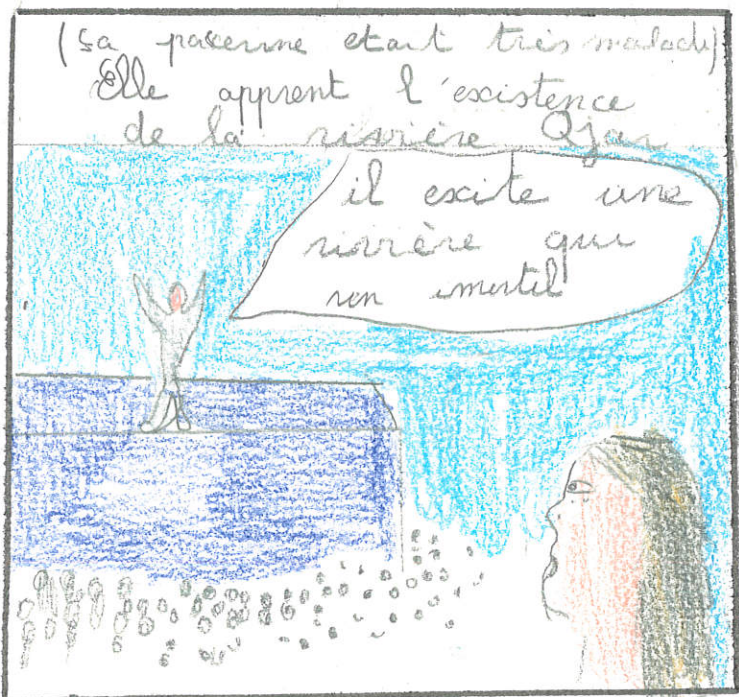 (sa parenne etait très malade)
Elle apprent l'existence
de la rivière Qjar
il excite une
rivière qui
ren imortil